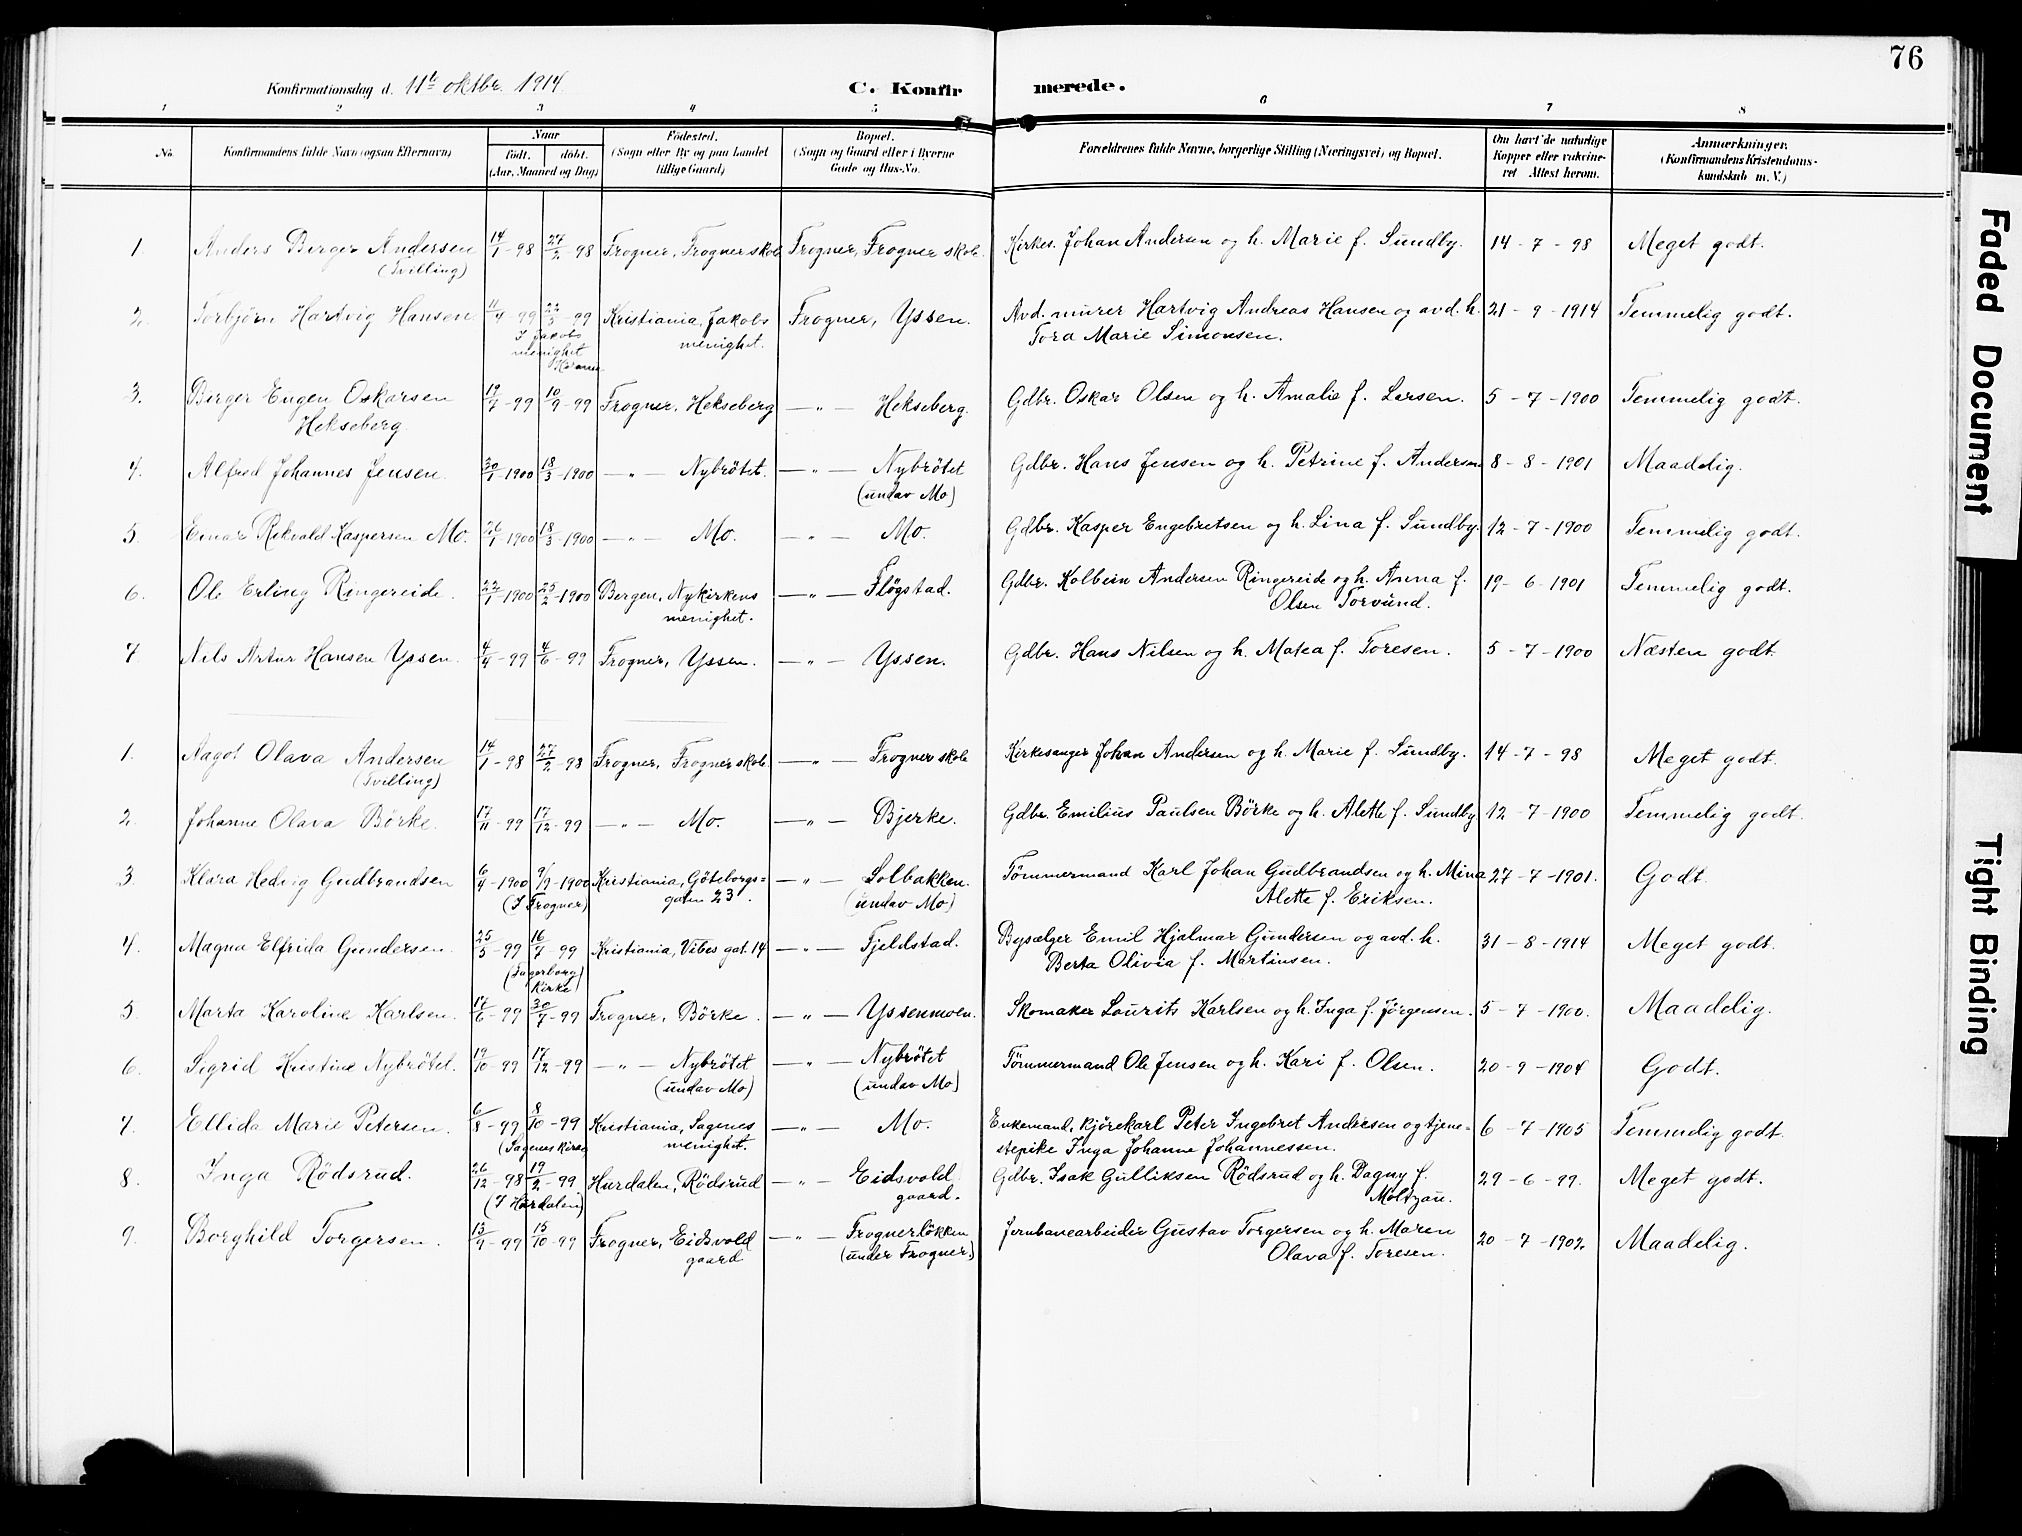 76
Konfirmationsdag d. 11te oktbr. 1914. C. Konfirmerede.
1 2 3 4 5 6 7 8
No. Konfirmandens fulde Navn (ogsaa Efternavn) Naar født. døbt. (Aar, Maaned og Dag) Fødested. (Sogn eller By og paa Landet tillige Gaard) Bopæl. (Sogn og Gaard eller i Byerne Gade og Hus-No. Forældrenes fulde Navne, borgerlige Stilling (Næringsvei) og Bopæl. Om havt de naturlige Kopper eller vakcineret Attest herom. Anmærkninger. (Konfirmandens Kristendomskundskab m. V.)
1. Anders Birger Andersen 14/1-98 27/2-98 Frogner, Frogner skole Frogner, Frogner skole. Kirkes. Johan Andersen og h. Marie f. Sundby. 14-7-98 Meget godt.
(Tvilling)
2. Torbjörn Hartvig Hansen 11/4-99 22/5-99 Kristiania, Jakobs Frogner, Yssen. Avd. murer Hartvig Andreas Hansen og avd. h. 21-9-1914 Temmelig godt.
I Jakobs menighet menighet. Tora Marie Simonsen.
3. Birger Eugen Oskarsen 19/7-99 10/9-99 Frogner, Hekseberg —"— Hekseberg. Gdbr. Oskar Olsen og h. Amalie f. Larsen. 5-7-1900 Temmelig godt.
Hekseberg
4. Alfred Johannes Jensen. 30/1-1900 18/3-1900 —"— Nybrötet. —"— Nybrötet Gdbr. Hans Jensen og h. Petrine f. Andersen 8-8-1901 Maadelig.
(undav Mo)
5. Einar Rikvald Kaspersen Mo. 26/1-1900 18/3-1900 —"— Mo. —"— Mo. Gdbr. Kasper Engebretsen og h. Lina f. Sundby. 12-7-1900 Temmelig godt.
6. Ole Erling Ringereide. 22/1-1900 25/2-1900 Bergen, Nykirkens —"— Flögstad. Gdbr. Kolbein Andersen Ringereide og h. Anna f. 19-6-1901 Temmelig godt.
menighet. Olsen Torvund.
7 Nils Artur Hansen Yssen. 4/4-99 4/6-99 Frogner, Yssen. —"— Yssen. Gdbr. Hans Nilsen og h. Matea f. Toresen. 5-7-1900 Næsten godt.
1. Aagot Olava Andersen 14/1-98 27/2-98 Frogner, Frogner skole —"— Frogner skole Kirkesanger Johan Andersen og h. Marie f. Sundby. 14-7-98 Meget godt.
(Tvilling)
2. Johanne Olava Börke. 17/11-99 17/12-99 —"— Mo. —"— Bjerke. Gdbr. Emilius Paulsen Börke og h. Alette f. Sundby 12-7-1900 Temmelig godt.
3. Klara Hedvig Gudbrandsen 6/4-1900 9/9-1900 Kristiania, Göteborgs= —"— Solbakken. Tömmermand Karl Johan Gudbrandsen og h. Mina 27-7-1901. Godt.
(I Frogner) gaten 23. (undav Mo) Alette f. Eriksen.
4. Magna Elfrida Gundersen. 25/5-99 16/7-99 Kristiania, Vibes gat. 14 —"— Fjeldstad. Bysælger Emil Hjalmar Gundersen og avd. h. 31-8-1914 Meget godt.
(Fagerborg Kirke) Berta Olivia f. Martinsen.
5. Marta Karoline Karlsen. 17/6-99 30/7-99 Frogner, Börke. —"— Yssenmoen. Skomaker Laurits Karlsen og h. Inga f. Jörgensen. 5-7-1900. Maadelig.
6. Sigrid Kristine Nybrötet. 19/10-99 17/12-99 —"— Nybrötet —"— Nybrötet Tömmermand Ole Jensen og h. Kari f. Olsen. 20-9-1904 Godt.
(undav Mo) (undav Mo)
7. Ellida Marie Petersen. 6/8-99 8/10-99 Kristiania, Sagenes —"— Mo. Enkemand, kjörekarl Peter Ingebret Andersen og tjene= 6-7-1905 Temmelig godt.
(Sagenes kirke) menighet. stepike Inga Johanne Johannessen.
8. Inga Rödsrud. 26/12-98 19/2-99 Hurdalen, Rödsrud —"— Eidsvold Gdbr. Isak Gulliksen Rödsrud og h. Dagny f. 29-6-99. Meget godt.
(I Hurdalen) gaard. Moltzau.
9. Borghild Torgersen. 13/9-99 15/10-99 Frogner, Eidsvold —"— Frognerlökken Jernbanearbeider Gustav Torgersen og h. Maren 20-7-1902. Maadelig.
gaard (under Frogner) Olava f. Toresen.
Faded Document
Tight Binding